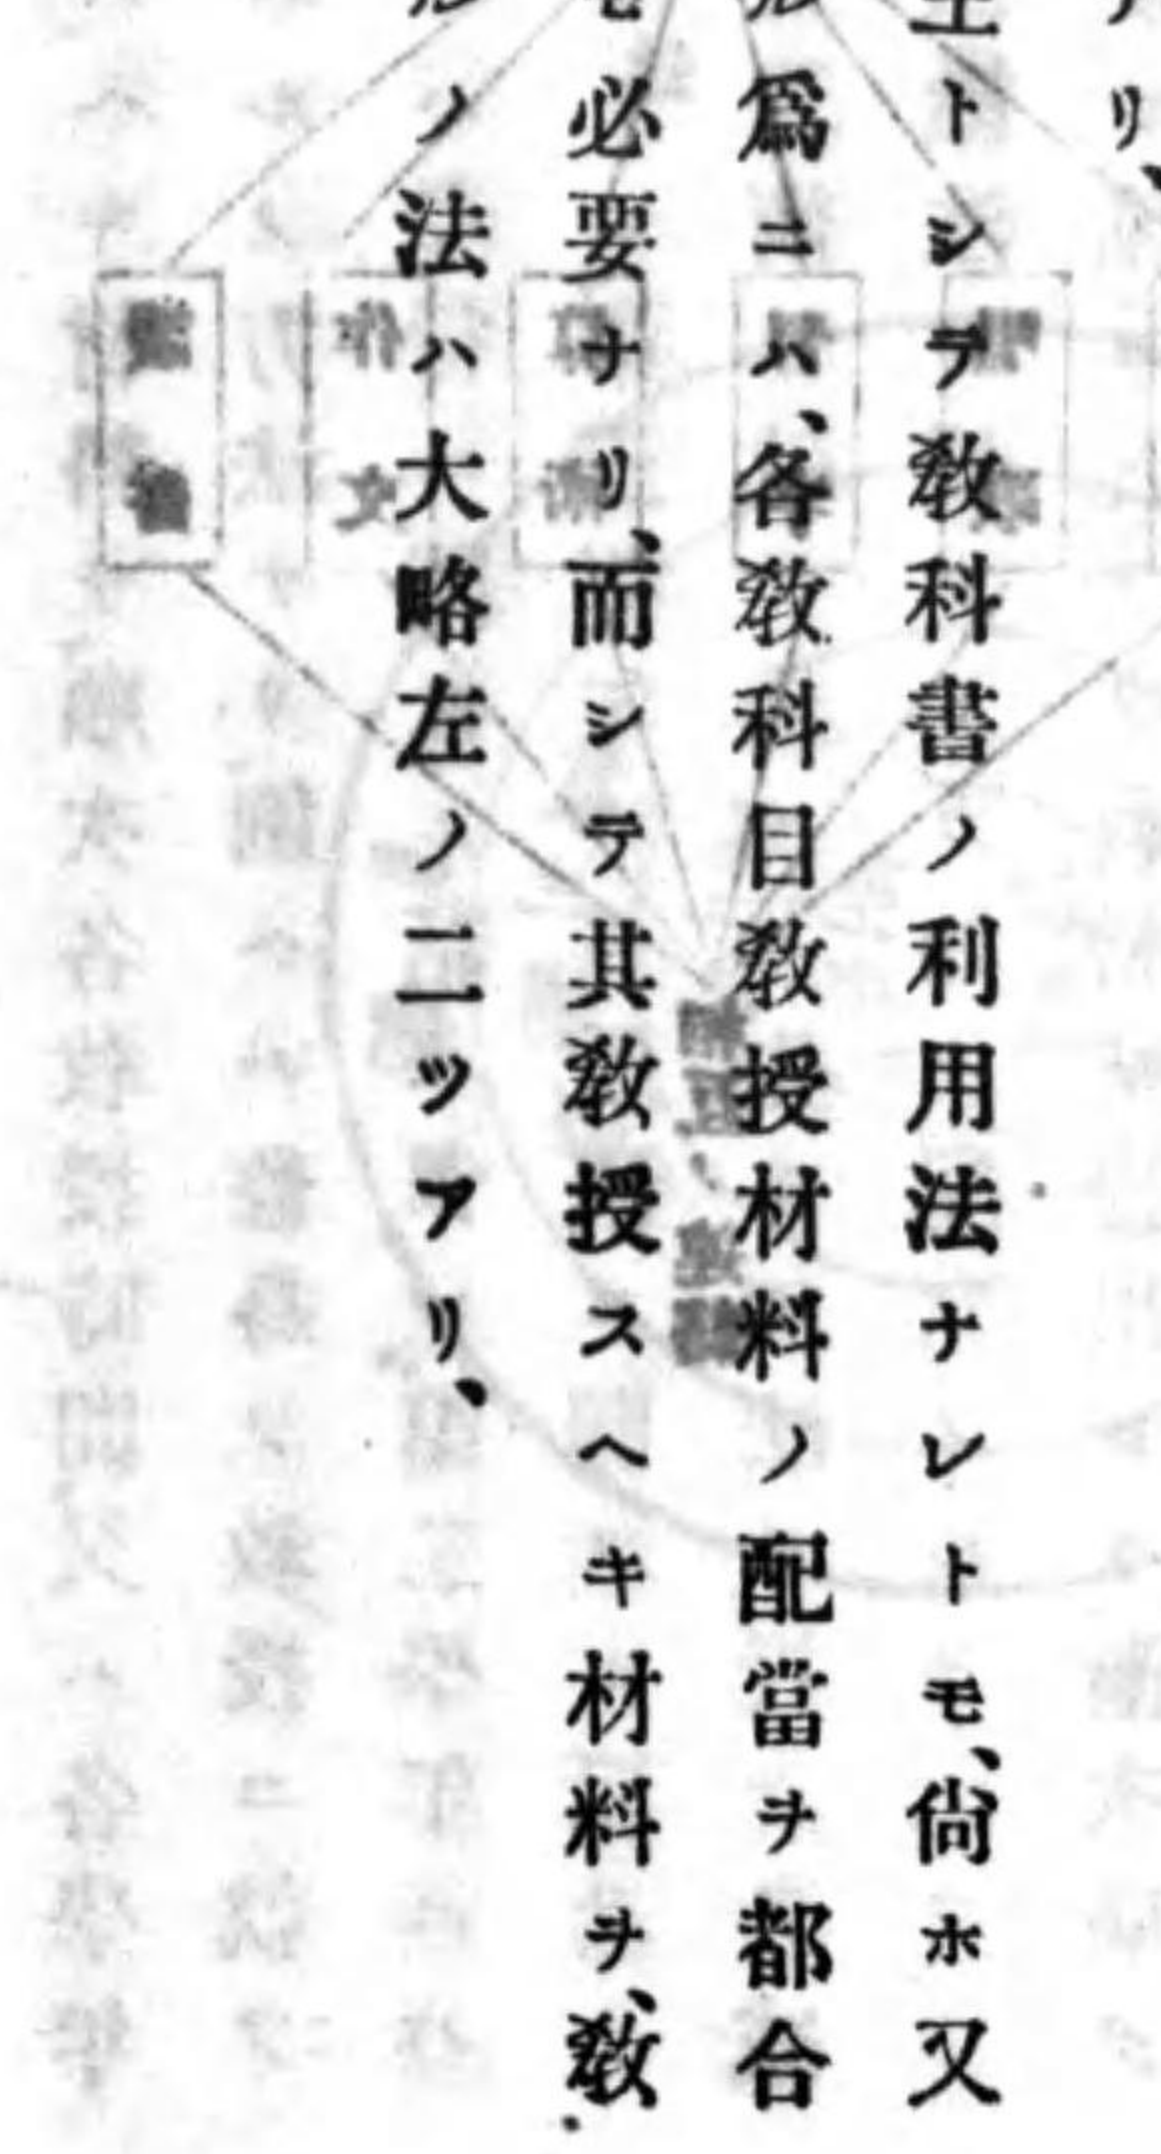 リ、
トシテ教科書ノ利用法ナレトモ、尙ホ又
爲ニハ、各教科目教授材料ノ配當ヲ都合
必要ナリ、而シテ其教授スヘキ材料ヲ、教
ノ法ハ大略左ノ二ツアリ、